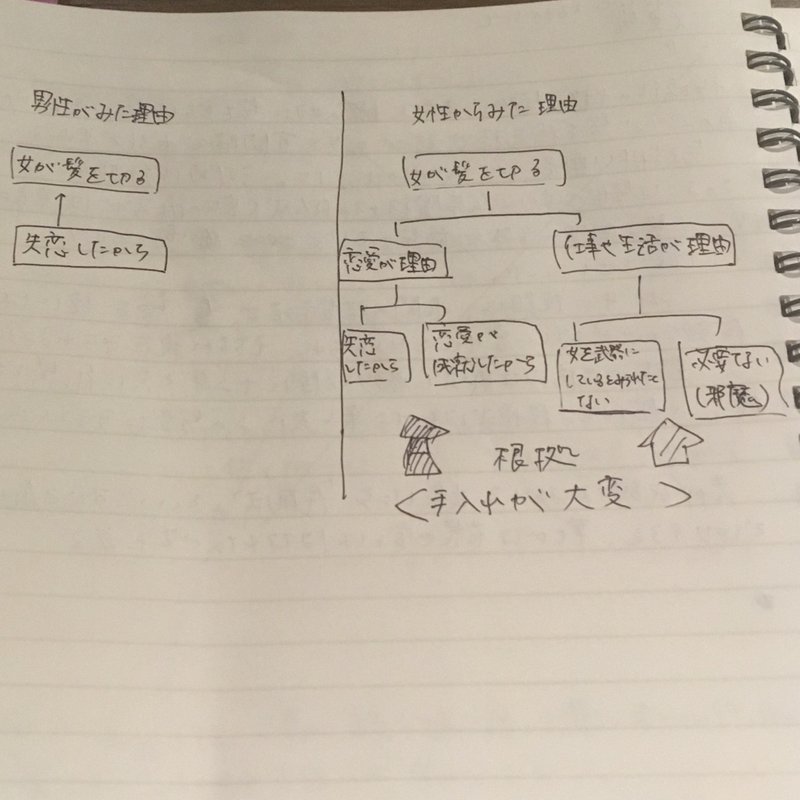 男性がみた理由
女が髪を切る
失恋したから
女性からみた理由
女が髪を切る
恋愛が理由
仕事や生活が理由
失恋
したから
恋愛が
したから
女を武器に
しているとみられたく
ない
必要ない
(邪魔)
根拠
<手入れが大変>